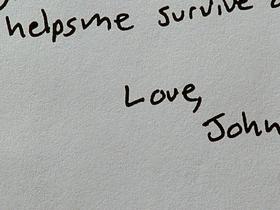 helpsme survive
Love,
John